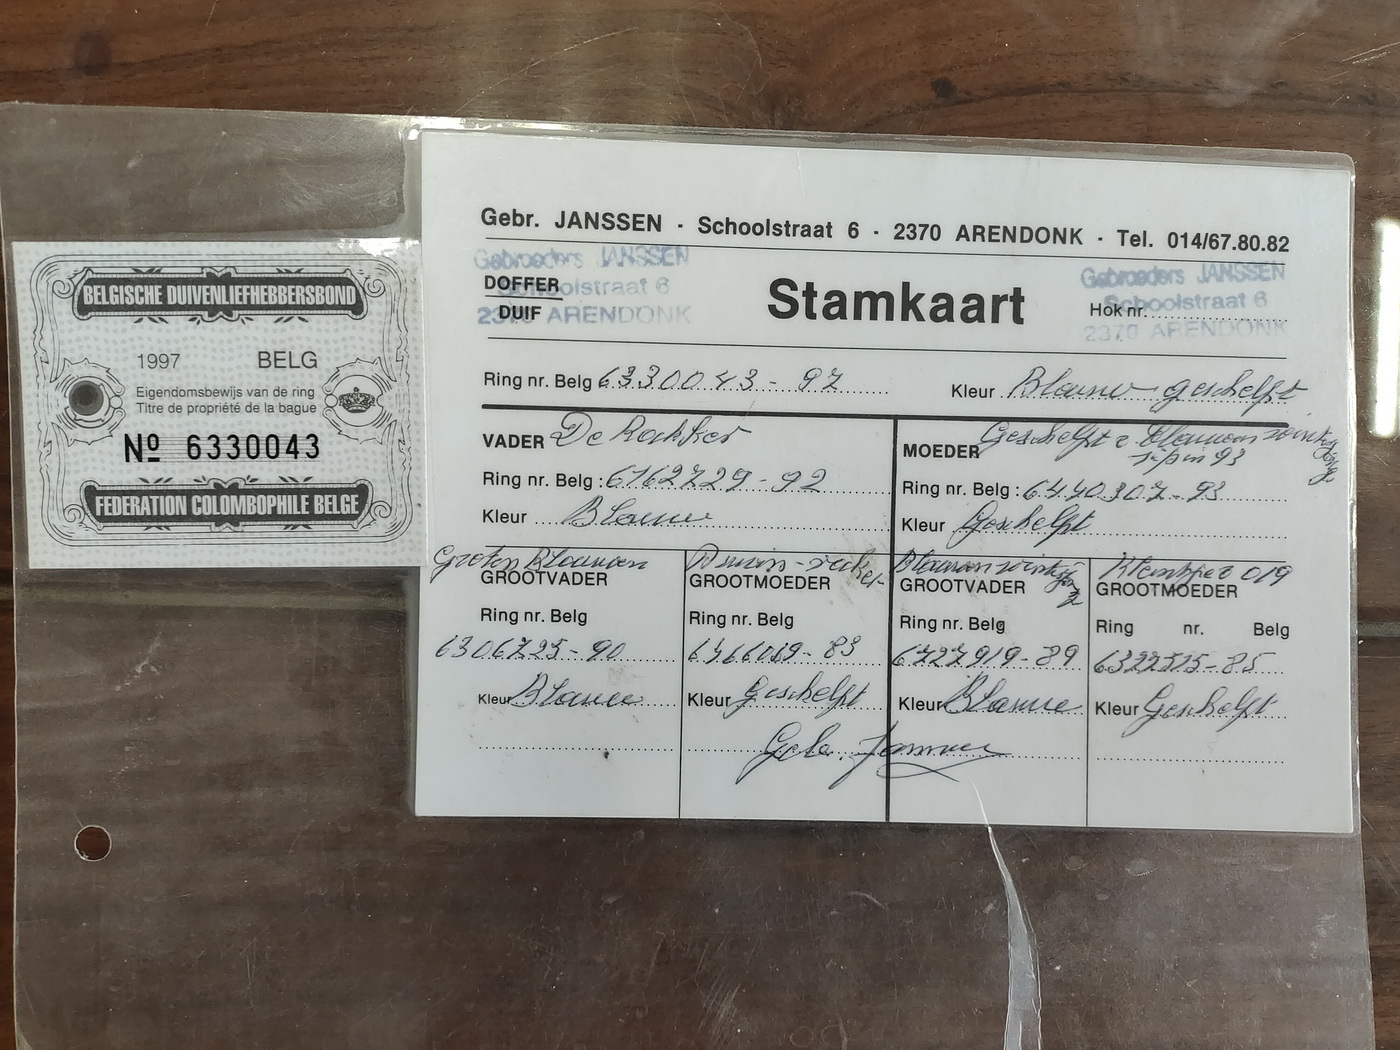 BELGISCHE DUIVENLIEFHEBBERSBOND
1997 BELG
Eigendomsbewijs van de ring
Titre de propriété de la bague
Nº 6330043
FEDERATION COLOMBOPHILE BELGE
Gebr. JANSSEN - Schoolstraat 6 - 2370 ARENDONK - Tel. 014/67.80.82
Gebroeders JANSSEN
Schoolstraat 6
2370 ARENDONK
DOFFER
DUIF
Stamkaart
Gebroeders JANSSEN
Schoolstraat 6
2370 ARENDONK
Hok nr.
Ring nr. Belg 6330043-97 Kleur Blauw geschelpt
VADER De Rakker
Ring nr. Belg : 6162729-92
Kleur Blauw
MOEDER Geschelpt
93
Ring nr. Belg : 6440307-93
Kleur Geschelpt
Groten Blauwen
GROOTVADER
Ring nr. Belg
6306725-90
Kleur Blauw
GROOTMOEDER
Ring nr. Belg
83
Kleur Geschelpt
Blauwen
GROOTVADER
Ring nr. Belg
6727919-89
Kleur Blauwe
019
GROOTMOEDER
Ring nr. Belg
6322515-85
Kleur Geschelpt
Gebr. Janssen